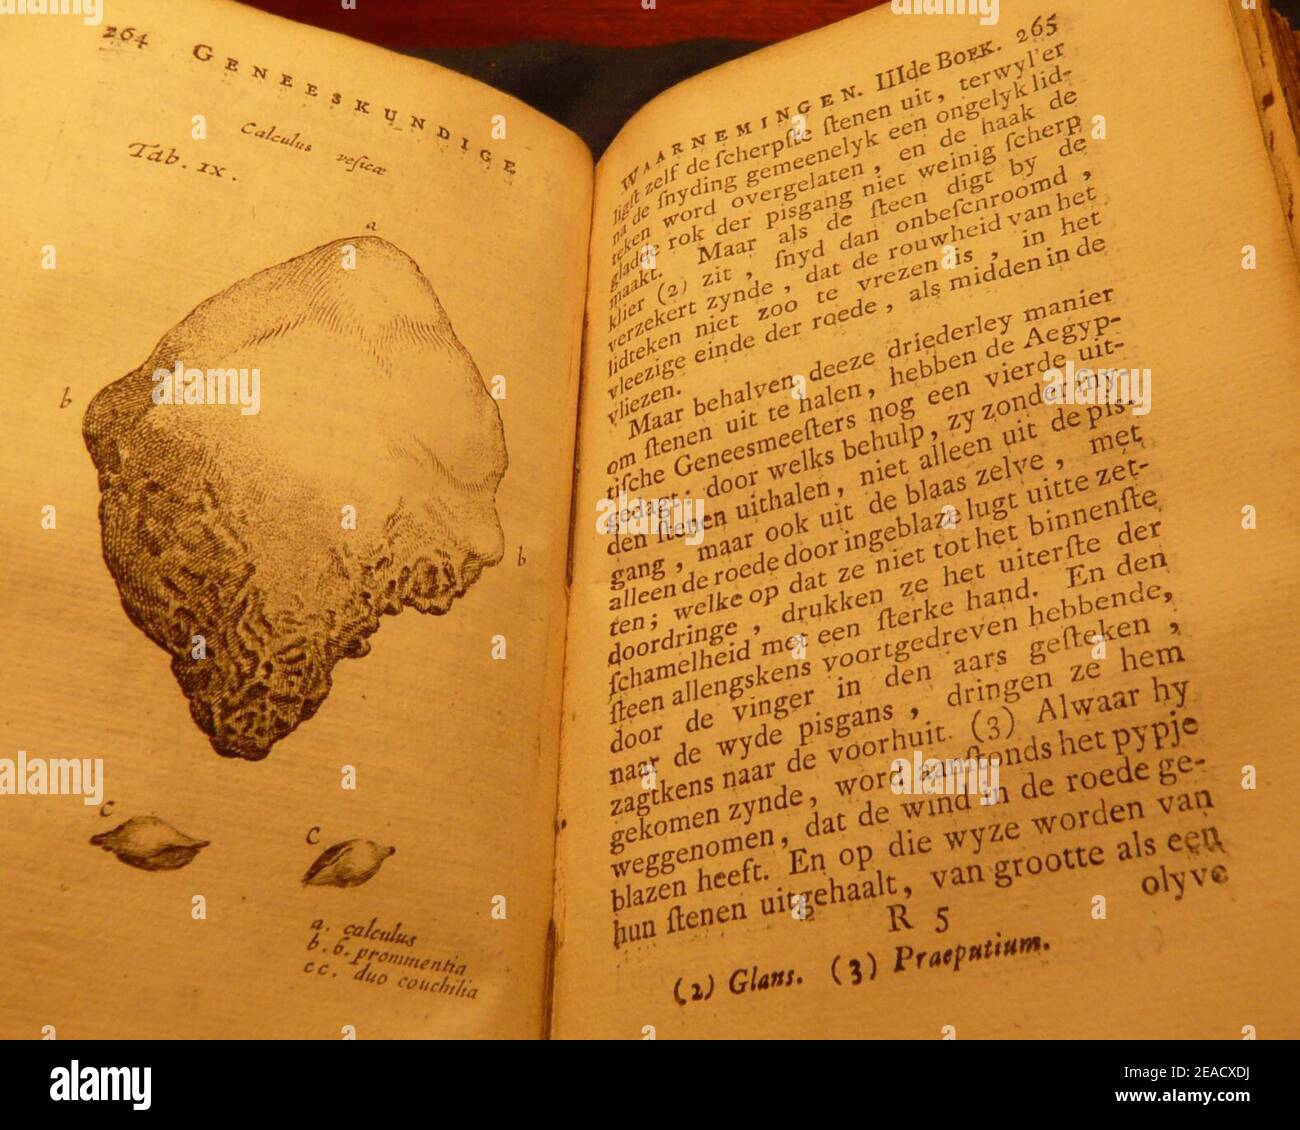 264 GENEESKUNDIGE
Calculus vesicæ
Tab. IX.
a
b
b
c
c
a. calculus
b. b. prommentia
cc. duo couchilia
WAARNEMINGEN. IIIde BOEK. 265
ligſt zelf de ſcherpſte ſtenen uit, terwyl'er
na de ſnyding gemeenelyk een ongelyk lid-
teken word overgelaten, en de haak de
gladde rok der pisgang niet weinig ſcherp
maakt. Maar als de ſteen digt by de
klier (2) zit, ſnyd dan onbeſchroomd,
verzekert zynde, dat de rouwheid van het
lidteken niet zoo te vrezen is, in het
vleezige einde der roede, als midden in de
vliezen.
Maar behalven deeze driederley manier
om ſtenen uit te halen, hebben de Aegyp-
tiſche Geneesmeeſters nog een vierde uit-
gedagt: door welks behulp, zy zonder ſny-
den ſtenen uithalen, niet alleen uit de pis-
gang, maar ook uit de blaas zelve, met
alleen de roede door ingeblaze lugt uitte zet-
ten; welke op dat ze niet tot het binnenſte
doordringe, drukken ze het uiterſte der
ſchamelheid met een ſterke hand. En den
ſteen allengskens voortgedreven hebbende,
door de vinger in den aars geſteken,
naar de wyde pisgans, dringen ze hem
zagtkens naar de voorhuit. (3) Alwaar hy
gekomen zynde, word aanſtonds het pypje
weggenomen, dat de wind in de roede ge-
blazen heeft. En op die wyze worden van
hun ſtenen uitgehaalt, van grootte als een
R 5 olyve
(2) Glans. (3) Praeputium.
alamy
Image ID: 2EACXDJ
www.alamy.com